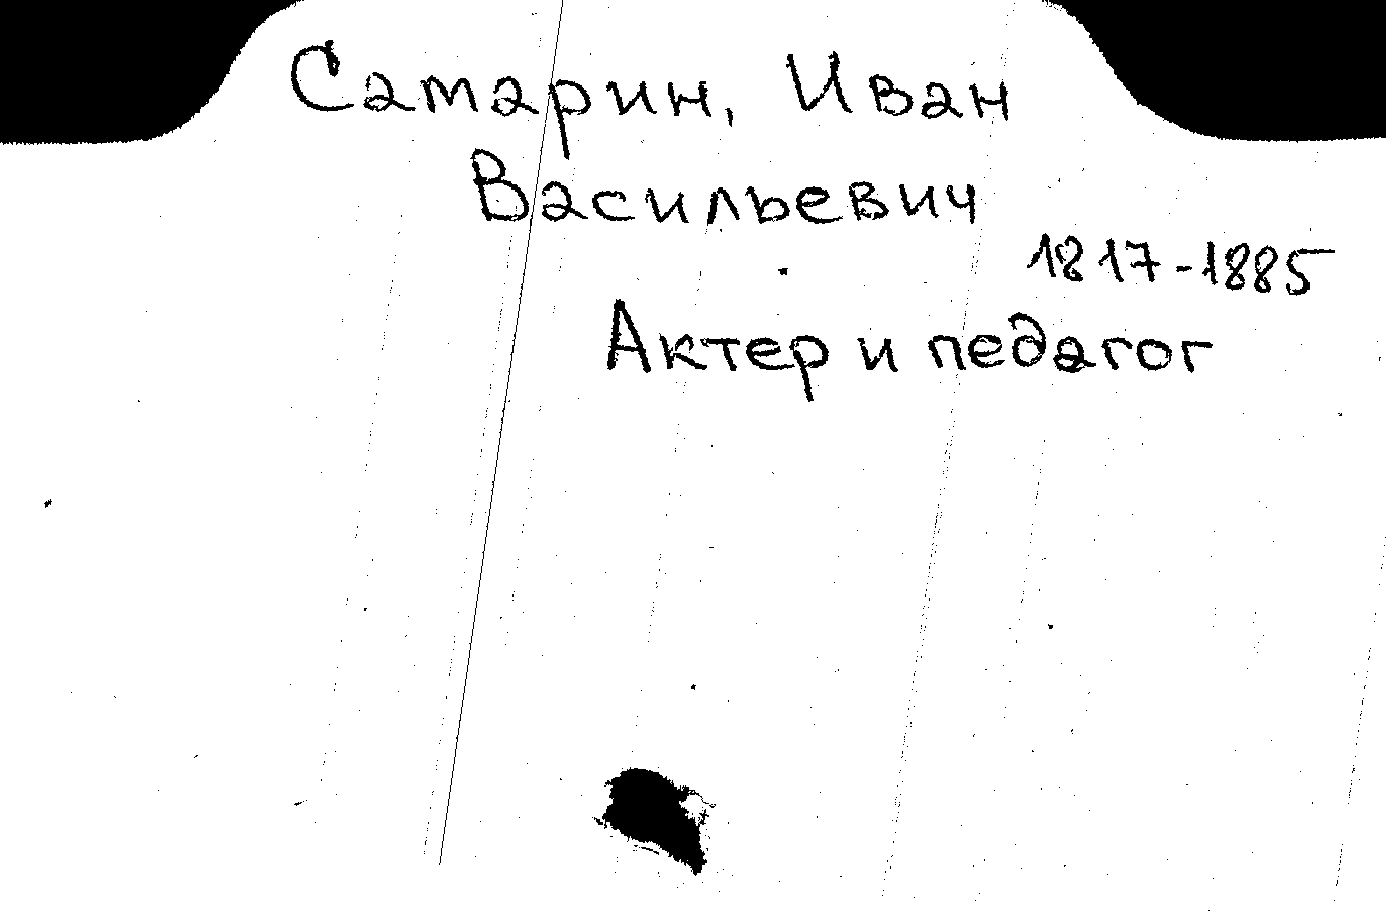 Самарин, Иван
Васильевич
1817-1885
Актер и педагог